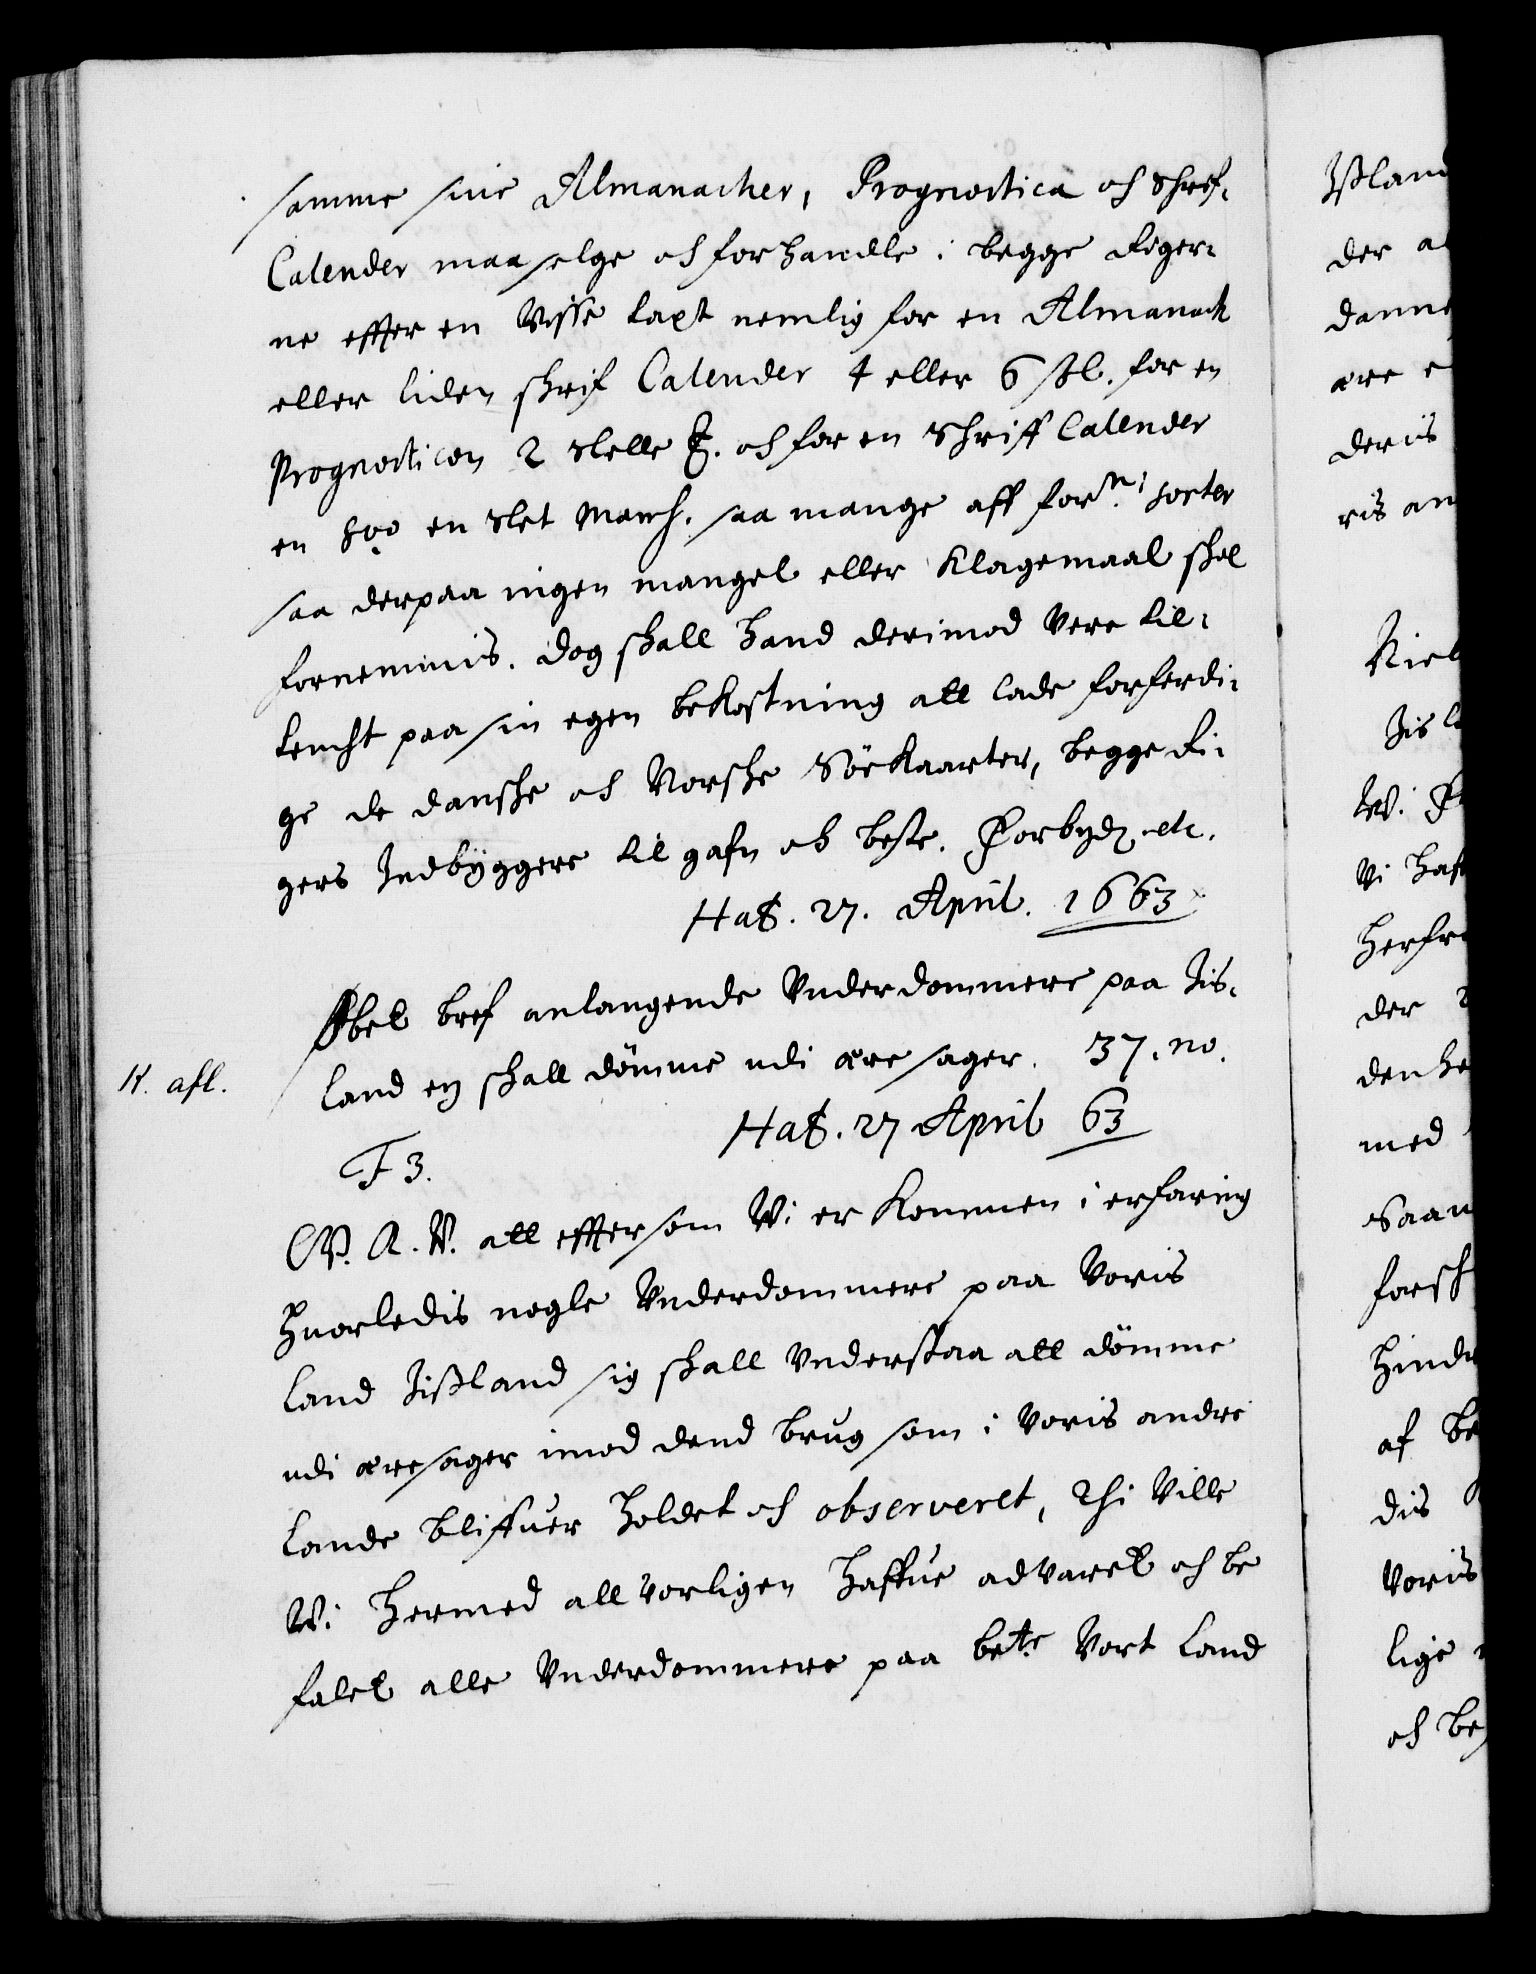 samme sine Almanacher, Prognostica och Schrif¬
Calender maa selge och forhandle i begge Riger¬
ne effter en Visse taxt nemlig for en Almanach
eller liden skrif Calender 4 eller 6 skl. for en
Prognosticon 2 slette ꝭ. och for en Schriff Calender
en 8vo en slet March. saa mange aff forne sorter
saa derpaa ingen mangel eller Klagemaal skal
fornemmis. dog skall hand derimod Vere til¬
tencht paa sin egen bekostning att lade forferdi¬
ge de danske och Norske Söekaarter, begge Ri¬
gers Indbyggere til gafn och beste. Forbydz. etc.
Haf. 27. April. 1663
Obet bref anlangende Vnderdommere paa Jis¬
land ey skall dömme udi ære sager. 37. no.
K. afl.
Haf. 27 April 63
F 3.
W. A. V. att effter som Wi er Kommen i erfaring
huorledis nogle Vnderdommere paa Voris
land Jisland sig skall Vnderstaa att dömme
udi æresager imod dend brug som i Voris andre
lande bliffuer holdet och observeret, Thi Ville
Wi hermed allvorligen haffue advaret och be
falet alle Vnderdommere paa bete Vort Land
Jisland
der
danne
ære
deris
ris
W.
Vi
der
med
forsk
af
dis
Voris
lige
och